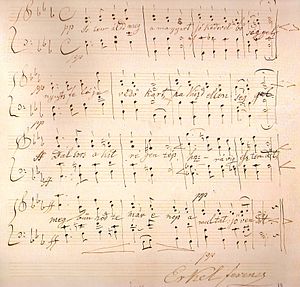 ppp Isten áldd meg a magyart jó kedvel bő seggel
nyujts feléje védő kart, ha küzd ellenséggel
ff Bal sors a kit régen tép hozz rá víg esztendőt
meg bűnhődte már e nép a multat s jövendőt
Erkel Ferencz